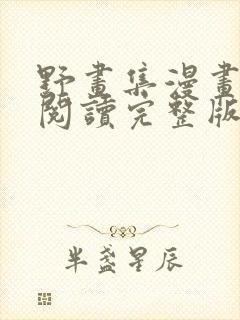 野畫集漫畫
閱讀完整版
半盞星辰